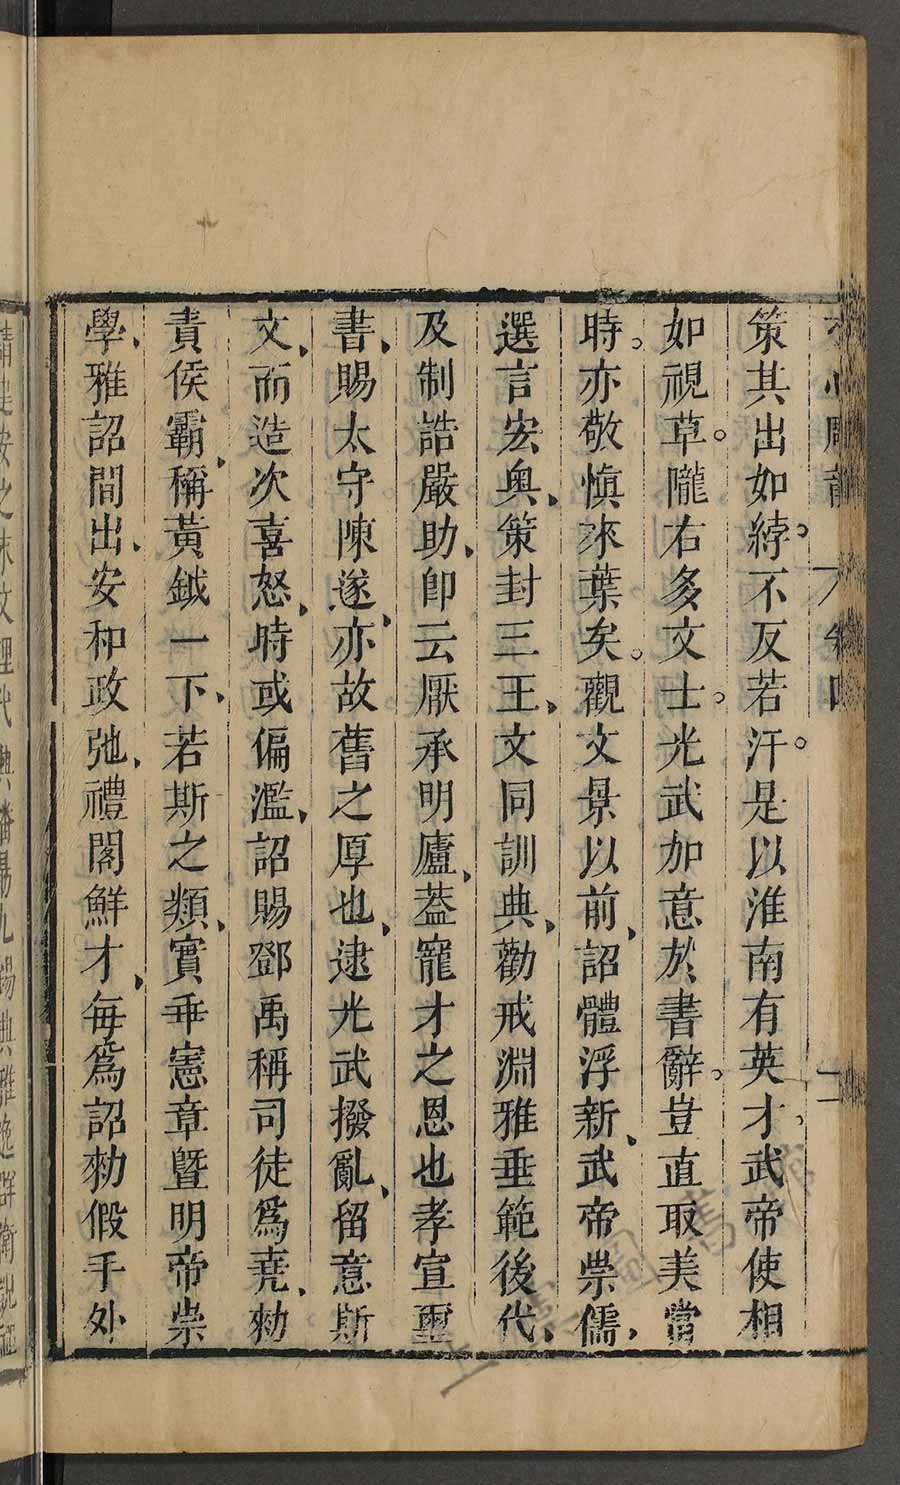 文心雕龍 卷四 二
策其出如綍。不反若汗。是以淮南有英才。武帝使相
如視草。隴右多文士。光武加意於書辭。豈直取美當
時。亦敬慎來葉矣。觀文景以前、詔體浮新、武帝崇儒、
選言宏奥、策封三王、文同訓典、勸戒淵雅垂範後代、
及制誥嚴助、卽云厭承明廬、葢寵才之恩也孝宣璽
書、賜太守陳遂、亦故舊之厚也、逮光武撥亂、留意斯
文、而造次喜怒、時或偏濫、詔賜鄧禹稱司徒爲堯、勑
責侯霸、稱黃鉞一下、若斯之類、實乖憲章曁明帝崇
學、雅詔間出、安和政弛、禮閣鮮才、每爲詔勑假手外